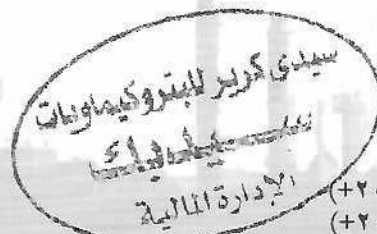 سيدى كرير للبتروكيماويات
سيدبك
الإدارة المالية
(+٢٠
(+٢